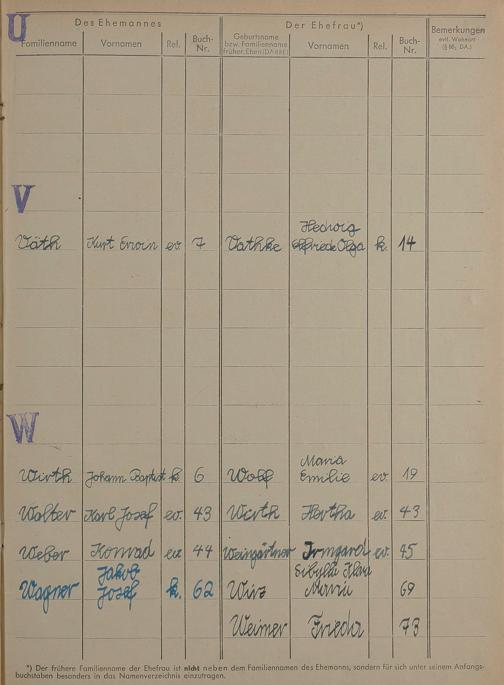 U
Des Ehemannes Der Ehefrau*)
Familienname Vornamen Rel. Buch-Nr. Geburtsname bzw. Familienname früher. Ehen (DA § 88) Vornamen Rel. Buch-Nr. Bemerkungen evtl. Wohnort (§ 86, DA.)
V
Hedwig
Väth Kurt Erwin ev. 7 Vathke Olga k. 14
W
Maria
Wirth Johann Baptist k. 6 Wolf Emilie ev. 19
Walter Karl Josef ev. 43 Wirth Hertha ev. 43
Weber Konrad ev. 44 Weingärtner Irmgard ev. 45
Jakob Sibylla
Wagner Josef k. 62 Wirz Maria 69
Weimer Frieda 73
*) Der frühere Familienname der Ehefrau ist nicht neben dem Familiennamen des Ehemanns, sondern für sich unter seinem Anfangs-
buchstaben besonders in das Namenverzeichnis einzutragen.